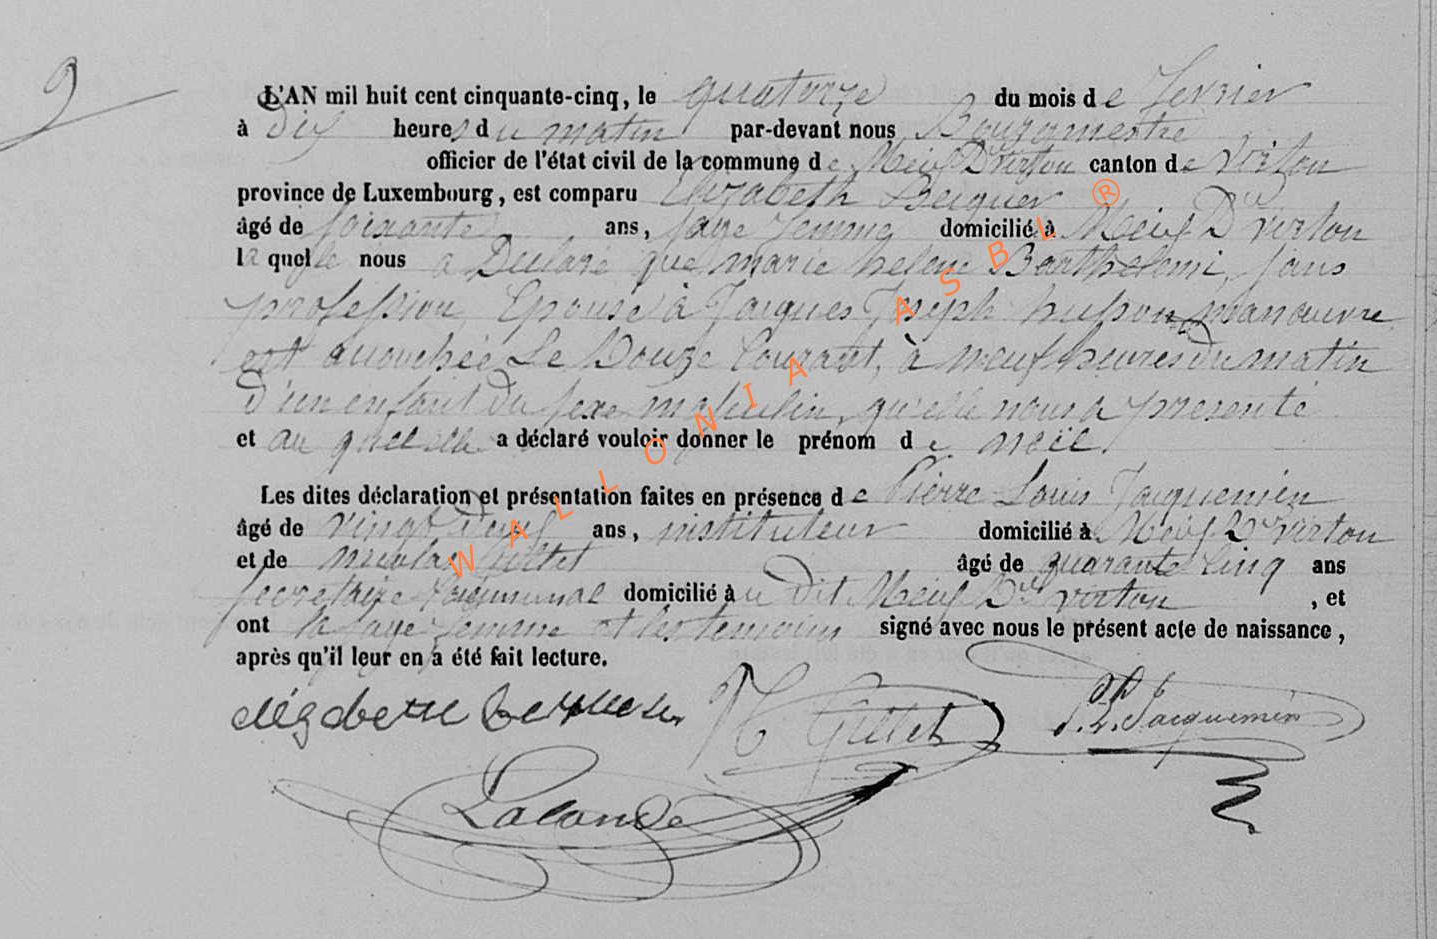 9
L'AN mil huit cent cinquante-cinq, le quatorze du mois de fevrier
à dix heures du matin par-devant nous Bourgmestre
officier de l'état civil de la commune de Meix Dt virton canton de virton
province de Luxembourg, est comparu Elizabeth
âgé de soixante ans, sage femme domicilié à Meix Dt virton
laquelle nous a Declare que marie helene Barthelemi, sans
profession, Epouse à Jacques Joseph husson manoeuvre
est accouchée Le Douze Courant, à neuf heures du matin
d'un enfant du sexe masculin, qu'elle nous a presenté
et au quel elle a déclaré vouloir donner le prénom de noël.
Les dites déclaration et présentation faites en présence de Pierre Louis Jacquemin
âgé de vingt neuf ans, instituteur domicilié à Meix Dt virton
et de nicolas Gillet âgé de quarante Cinq ans
secretaire Communal domicilié au dit Meix Dt virton, et
ont la sage femme et les temoins signé avec nous le présent acte de naissance,
après qu'il leur en a été fait lecture.
N Gillet P. L. Jacquemin
Lalande
WALLONIA ASBL ®